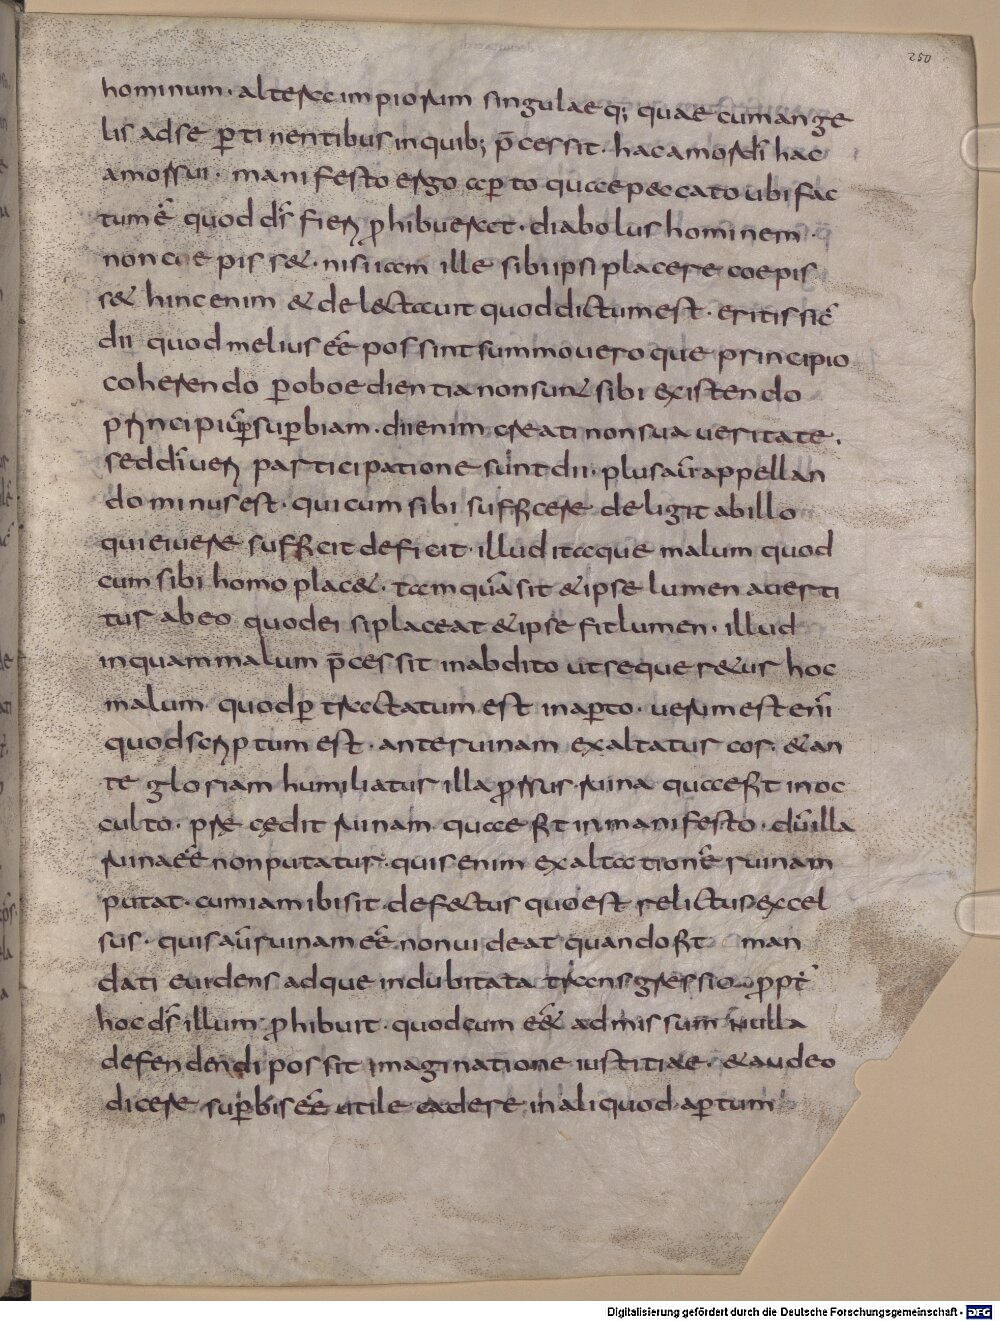 250
hominum · altera impiorum singulaeq; quae cum ange
lis ad se ꝑtinentibus in quib; p̄cessit · hac amor dī hac
amor sui · manifesto ergo aꝑto quae peccato ubi fac
tum ē quod ds̄ fieri ꝓhibuerat · diabolus hominem ·
non coepisset · nisi iam ille sibi ipsi placere coepis
set hinc enim & delectauit quod dictum est · eritis sic̄
dii quod melius eē possint summo uero que principio
coherendo ꝑ oboedientia non suū sibi existendo
principiū ꝑ suꝑbiam · dii enim creati non sua ueritate ·
sed dī ueri participatione sunt dii · plus aū appellan
do minus est · qui cum sibi sufficere deligit ab illo
qui ei uere sufficit deficit · illud itaque malum quod
cum sibi homo placet · tamquā sit & ipse lumen auerti
tur ab eo quod ei si placeat & ipse fit lumen · illud
inquam malum p̄cessit in abdito ut sequeretur hoc
malum quod ꝑtractatum est in aꝑto · uerum est enī
quod scriptum est · ante ruinam exaltatur cor · & an
te gloriam humiliatur illa ꝓrsus ruina quae fit in oc
culto · prae cędit ruinam quae fit in manifesto · dū illa
ruina eē non putatur · quis enim exaltationē ruinam
putat · cum iam ibi sit defectus quo est relictus excel
sus · quis aū ruinam eē non uideat quando fit man
dati euidens adque indubitata transgressio ꝓpt̄
hoc ds̄ illum ꝓhibuit · quod cum eēt admissum nulla
defendendi possit imaginatione iustitiae · & audeo
dicere suꝑbis eē utile cadere in aliquod aꝑtum
Digitalisierung gefördert durch die Deutsche Forschungsgemeinschaft - DFG